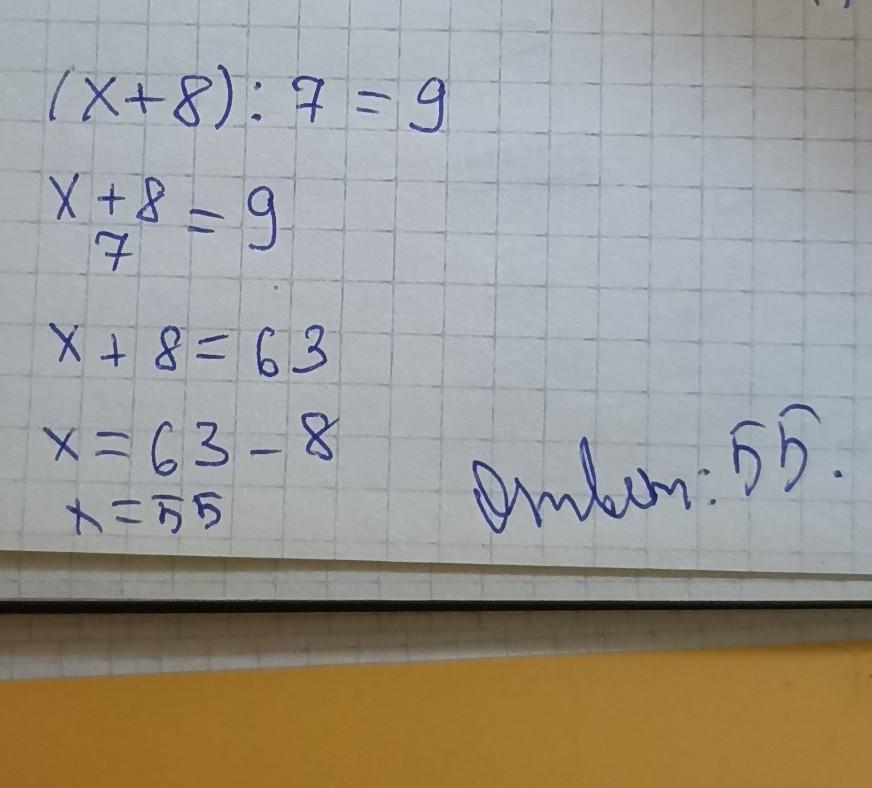 (x+8):7=9
x+8
7
=9
x+8=63
x=63-8
x=55
Ответ: 55.